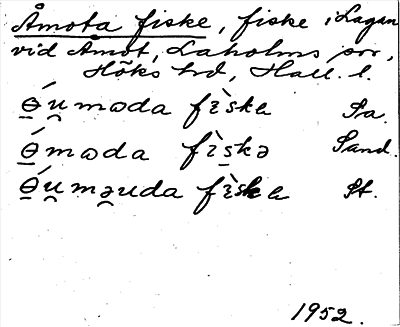 Åmota fiske, fiske i Lagan
vid Åmot, Laholms sn,
Höks hd, Hall. l.
ɵ́u̯mɷda fɪ̀ska Sa.
ɵ́mɷda fɪ̀skə Sand.
ɵ́u̯mə̯uda fɪ̀ska St.
1952.